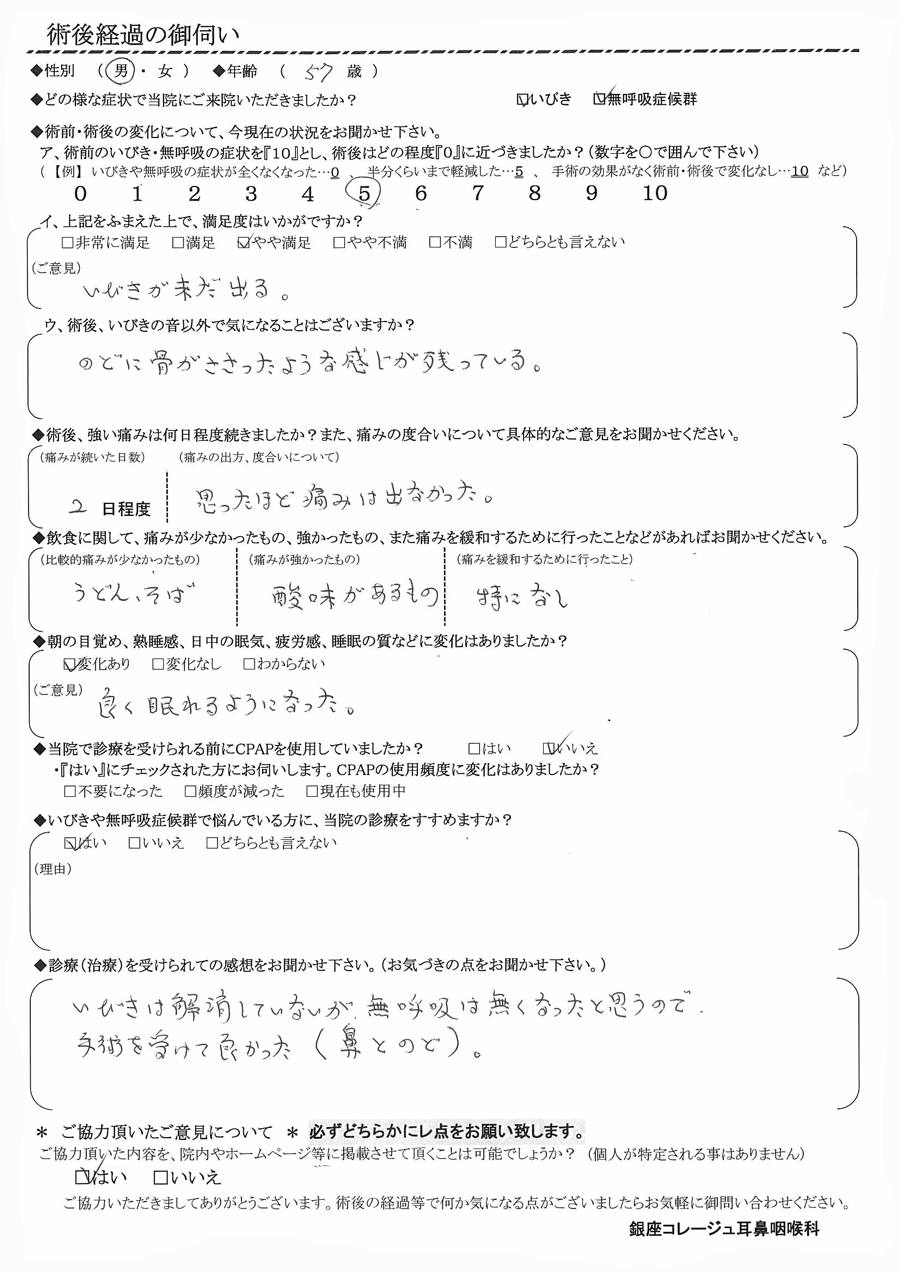 術後経過の御伺い
◆性別 （ 男 ・ 女 ） ◆年齢 （ 57 歳 ）
◆どの様な症状で当院にご来院いただきましたか？ ☑いびき ☑無呼吸症候群
◆術前・術後の変化について、今現在の状況をお聞かせ下さい。
ア、術前のいびき・無呼吸の症状を『10』とし、術後はどの程度『0』に近づきましたか？（数字を〇で囲んで下さい）
（【例】 いびきや無呼吸の症状が全くなくなった…0 、 半分くらいまで軽減した…5 、 手術の効果がなく術前・術後で変化なし…10 など）
0 1 2 3 4 5 6 7 8 9 10
イ、上記をふまえた上で、満足度はいかがですか？
□非常に満足 □満足 ☑やや満足 □やや不満 □不満 □どちらとも言えない
（ご意見）
いびきが未だ出る。
ウ、術後、いびきの音以外で気になることはございますか？
のどに骨がささったような感じが残っている。
◆術後、強い痛みは何日程度続きましたか？また、痛みの度合いについて具体的なご意見をお聞かせください。
（痛みが続いた日数） （痛みの出方、度合いについて）
2 日程度 思ったほど痛みは出なかった。
◆飲食に関して、痛みが少なかったもの、強かったもの、また痛みを緩和するために行ったことなどがあればお聞かせください。
（比較的痛みが少なかったもの） （痛みが強かったもの） （痛みを緩和するために行ったこと）
うどん、そば 酸味があるもの 特になし
◆朝の目覚め、熟睡感、日中の眠気、疲労感、睡眠の質などに変化はありましたか？
☑変化あり □変化なし □わからない
（ご意見）
良く眠れるようになった。
◆当院で診療を受けられる前にCPAPを使用していましたか？ □はい ☑いいえ
・『はい』にチェックされた方にお伺いします。CPAPの使用頻度に変化はありましたか？
□不要になった □頻度が減った □現在も使用中
◆いびきや無呼吸症候群で悩んでいる方に、当院の診療をすすめますか？
☑はい □いいえ □どちらとも言えない
（理由）
◆診療（治療）を受けられての感想をお聞かせ下さい。（お気づきの点をお聞かせ下さい。）
いびきは解消していないが、無呼吸は無くなったと思うので、
手術を受けて良かった（鼻とのど）。
＊ ご協力頂いたご意見について ＊ 必ずどちらかにレ点をお願い致します。
ご協力頂いた内容を、院内やホームページ等に掲載させて頂くことは可能でしょうか？ （個人が特定される事はありません）
☑はい □いいえ
ご協力いただきましてありがとうございます。術後の経過等で何か気になる点がございましたらお気軽に御問い合わせください。
銀座コレージュ耳鼻咽喉科